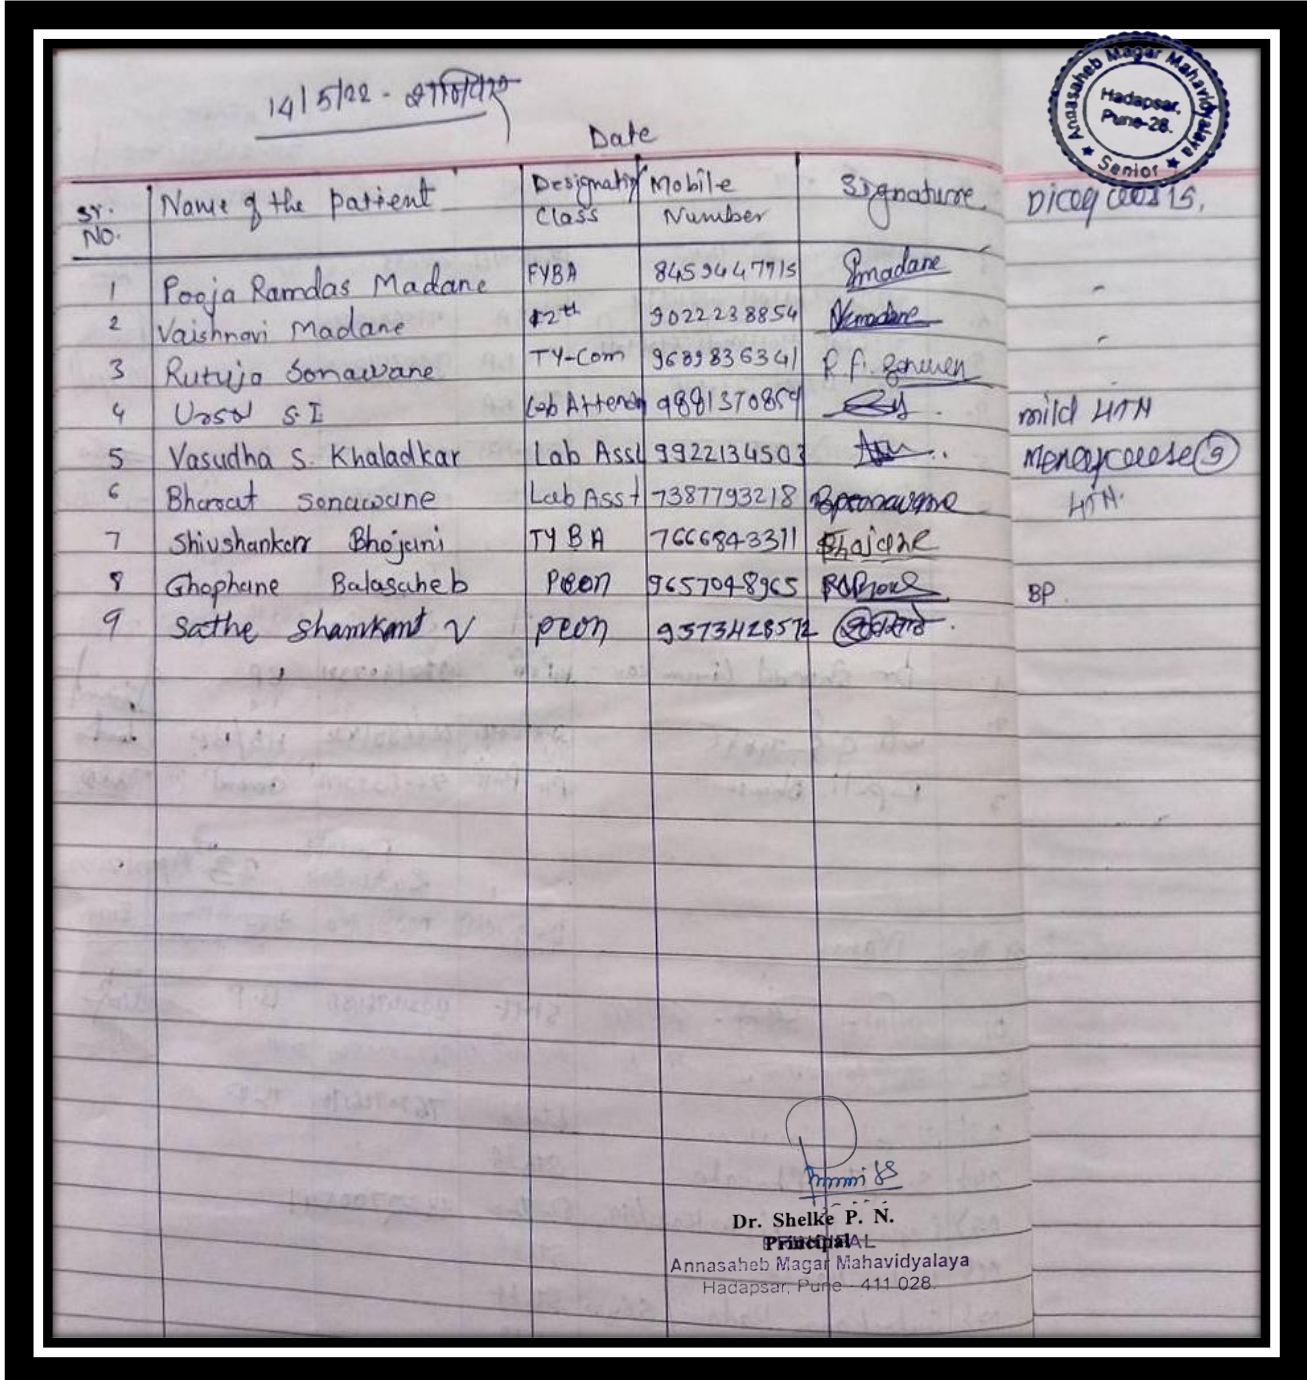 14/5/22 - शनिवार
Annasaheb Magar Mahavidyalaya
Hadapsar,
Pune-28.
★ Senior ★
Date
Sr. No. Name of the patient Designation Class Mobile Number Signature
1 Pooja Ramdas Madane FYBA 8459447915 Pmadane -
2 Vaishnavi Madane 12th 9022238854 -
3 Rutuja Sonawane TY-Com 9689836341 -
4 S. I Lab Attend 9881370859 mild HTN
5 Vasudha S. Khaladkar Lab Asst 9922134503
6 Bharat Sonawane Lab Asst 7387793218 HTN.
7 Shivshanker Bhojani TYBA 7666843311
8 Ghophane Balasaheb Peon 9657048965 BP
9 Sathe Shamkant V Peon 9573428572
Dr. Shelke P. N.
Principal
Annasaheb Magar Mahavidyalaya
Hadapsar, Pune - 411 028.